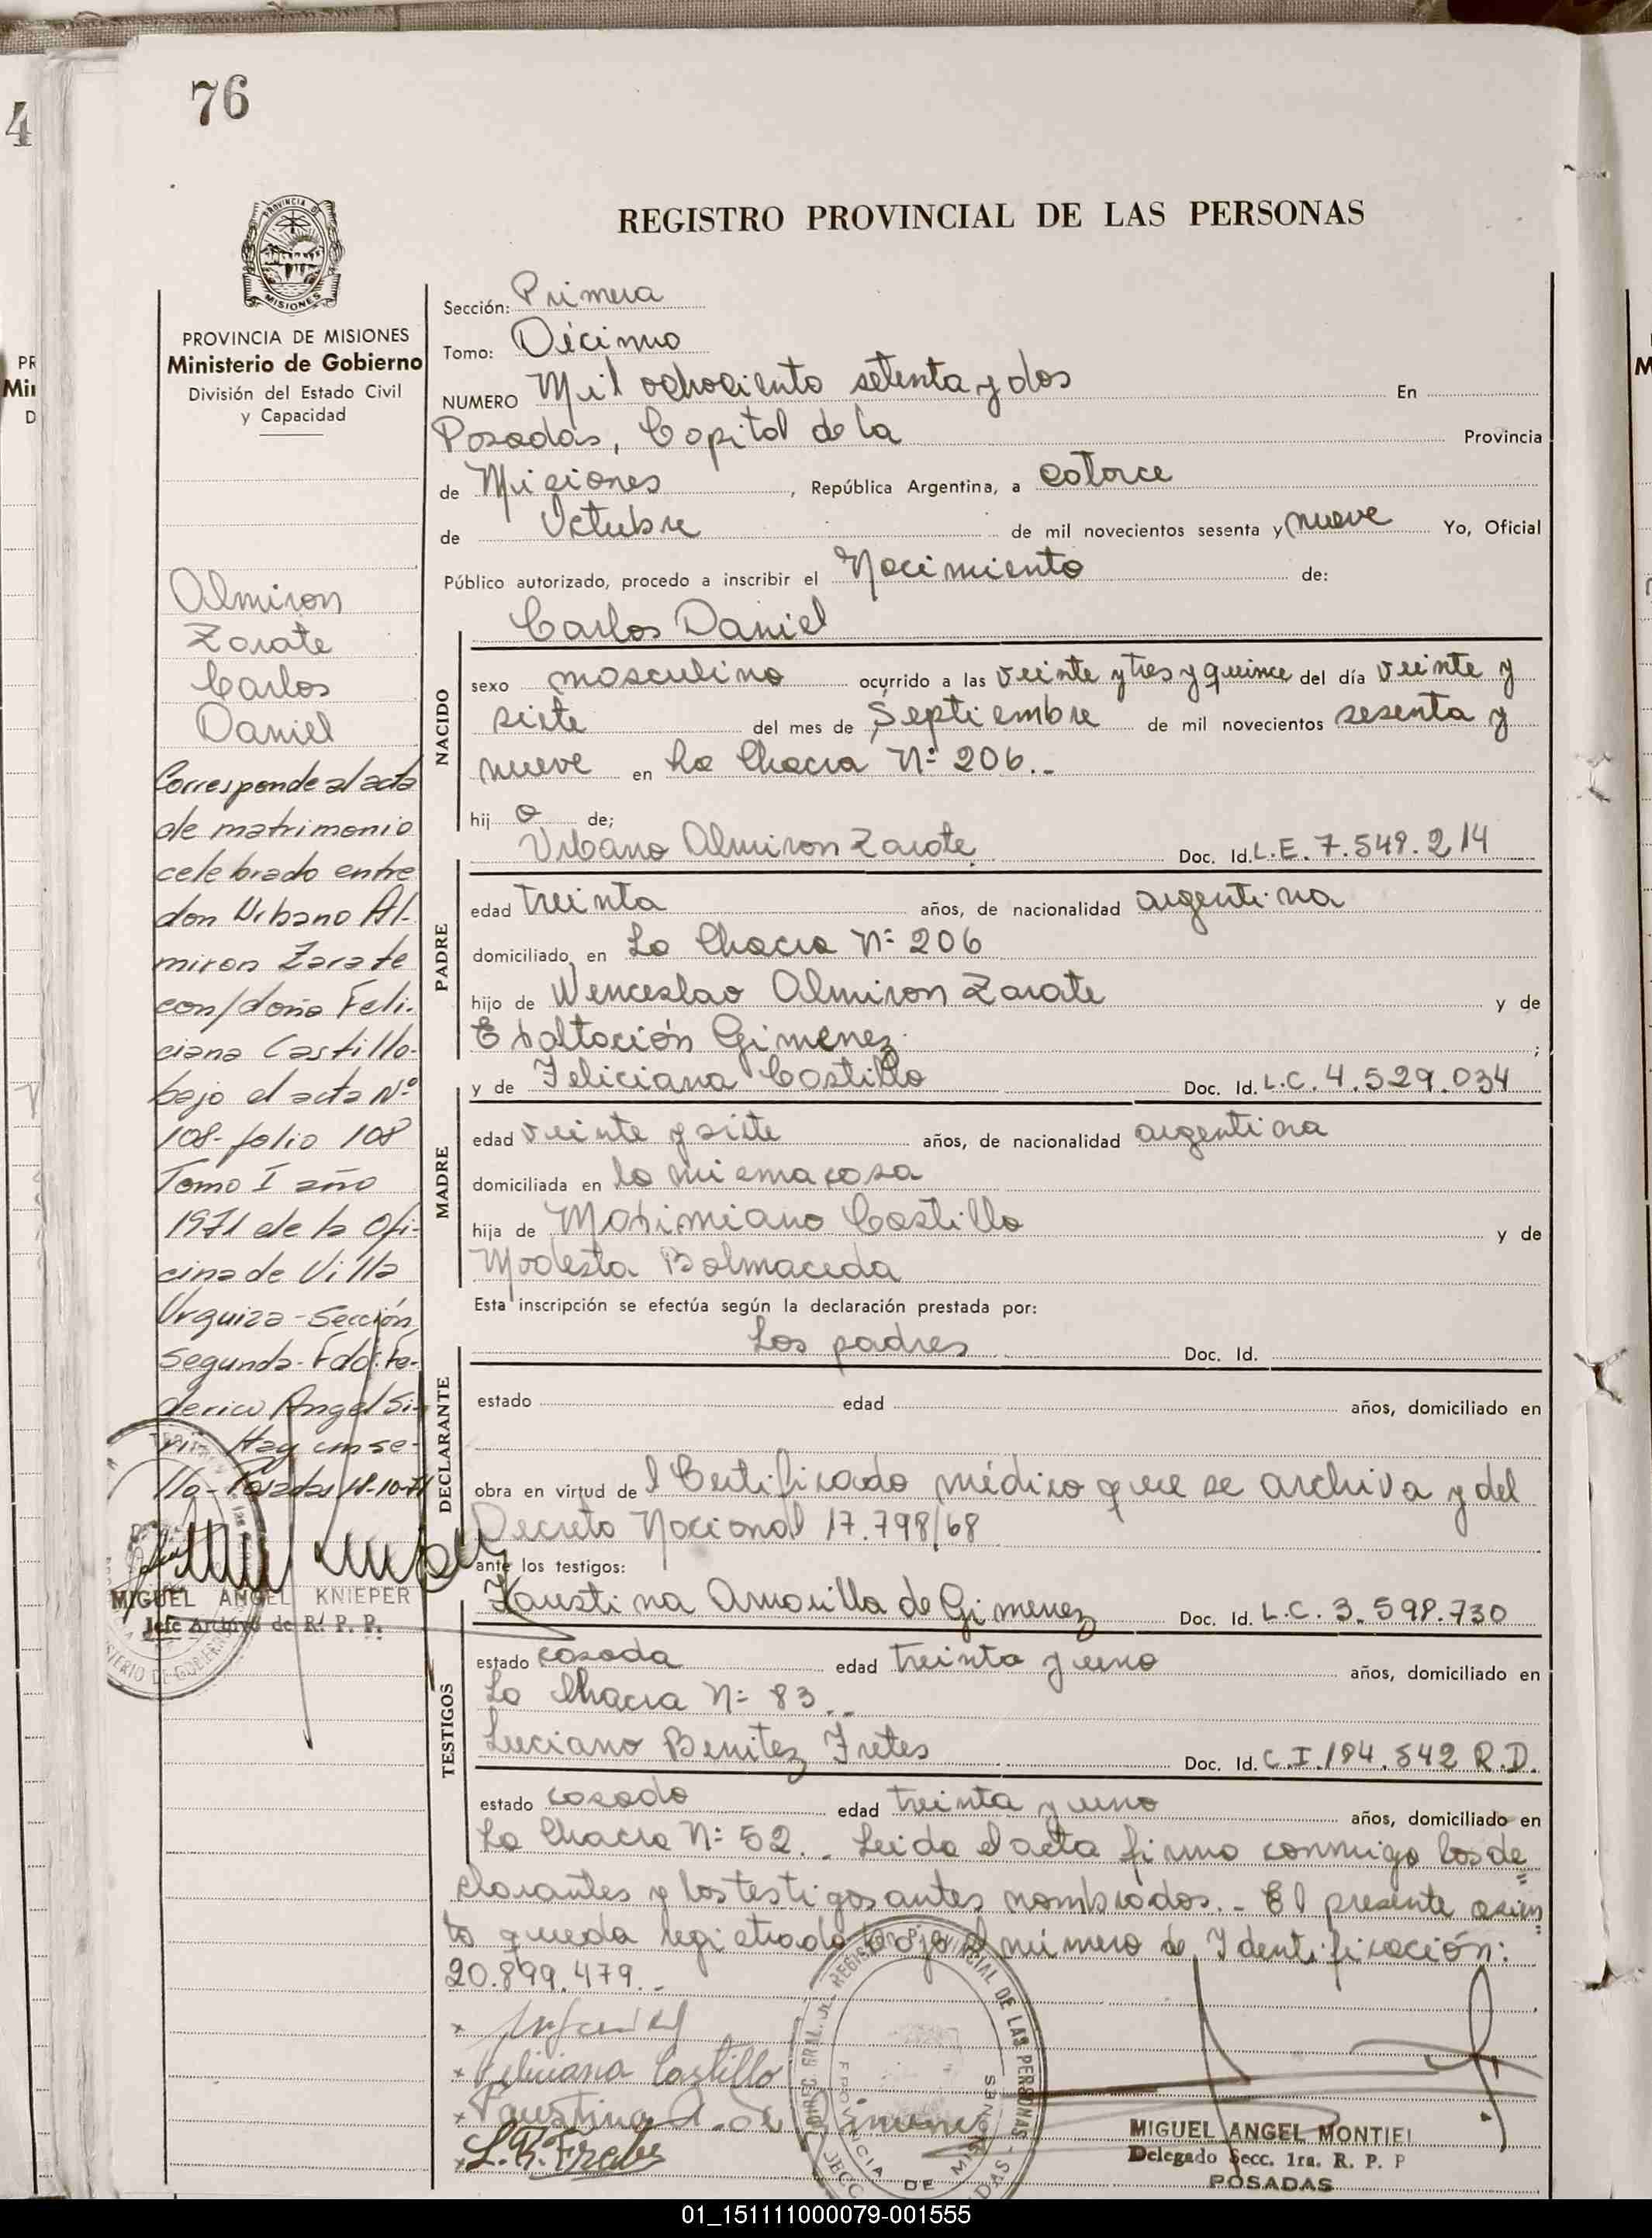 76
4
REGISTRO PROVINCIAL DE LAS PERSONAS
PROVINCIA DE MISIONES
Ministerio de Gobierno
División del Estado Civil
y Capacidad
Almiron
Zarate
Carlos
Daniel
Corresponde al acta
de matrimonio
celebrado entre
don Urbano Al-
miron Zarate
con/doña Feli-
ciana Castillo-
bajo el acta Nº
108- folio 108
Tomo I año
1971 de la Ofi-
cina de Villa
Urquiza - Sección
Segunda - Fdo: Fe-
derico Angel Si-
Hay un se-
llo - Posadas 18-10-71
MIGUEL ANGEL KNIEPER
Jefe Archivo de R. P. P.
Sección: Primera
Tomo: Décimo
NUMERO Mil ochociento setenta y dos En
Posadas, Capital de la Provincia
de Misiones, República Argentina, a catorce
de Octubre de mil novecientos sesenta y nueve Yo, Oficial
Público autorizado, procedo a inscribir el Nacimiento de:
Carlos Daniel
NACIDO
sexo masculino ocurrido a las veinte y tres y quince del día veinte y
siete del mes de Septiembre de mil novecientos sesenta y
nueve en La Chacra Nº 206.-
hij o de;
Urbano Almiron Zarate Doc. Id. L.E. 7.549.214
PADRE
edad treinta años, de nacionalidad argentina
domiciliado en La Chacra Nº 206
hijo de Wenceslao Almiron Zarate y de
Exaltación Gimenez ;
y de Feliciana Castillo Doc. Id. L.C. 4.529.034
MADRE
edad veinte y siete años, de nacionalidad argentina
domiciliada en la misma casa
hija de Maximiano Castillo y de
Modesta Balmaceda
Esta inscripción se efectúa según la declaración prestada por:
Los padres Doc. Id.
DECLARANTE
estado edad años, domiciliado en
obra en virtud de l Certificado médico que se archiva y del
Decreto Nacional 17.798/68
ante los testigos:
Faustina Amarilla de Gimenez Doc. Id. L.C. 3.598.730
TESTIGOS
estado casada edad treinta y uno años, domiciliado en
La Chacra Nº 83.-
Luciano Benitez Fretes Doc. Id. C.I. 194.542 R.D.
estado casado edad treinta y uno años, domiciliado en
La Chacra Nº 52.- Leida el acta firma conmigo los de
clarantes y los testigos antes nombrados.- El presente asien
to queda registrado bajo el número de Identificación:
20.899.479.-
Feliciana Castillo
Faustina A. de Gimenez
L. B. Fretes
MIGUEL ANGEL MONTIEL
Delegado Secc. 1ra. R. P. P
POSADAS
01_151111000079-001555